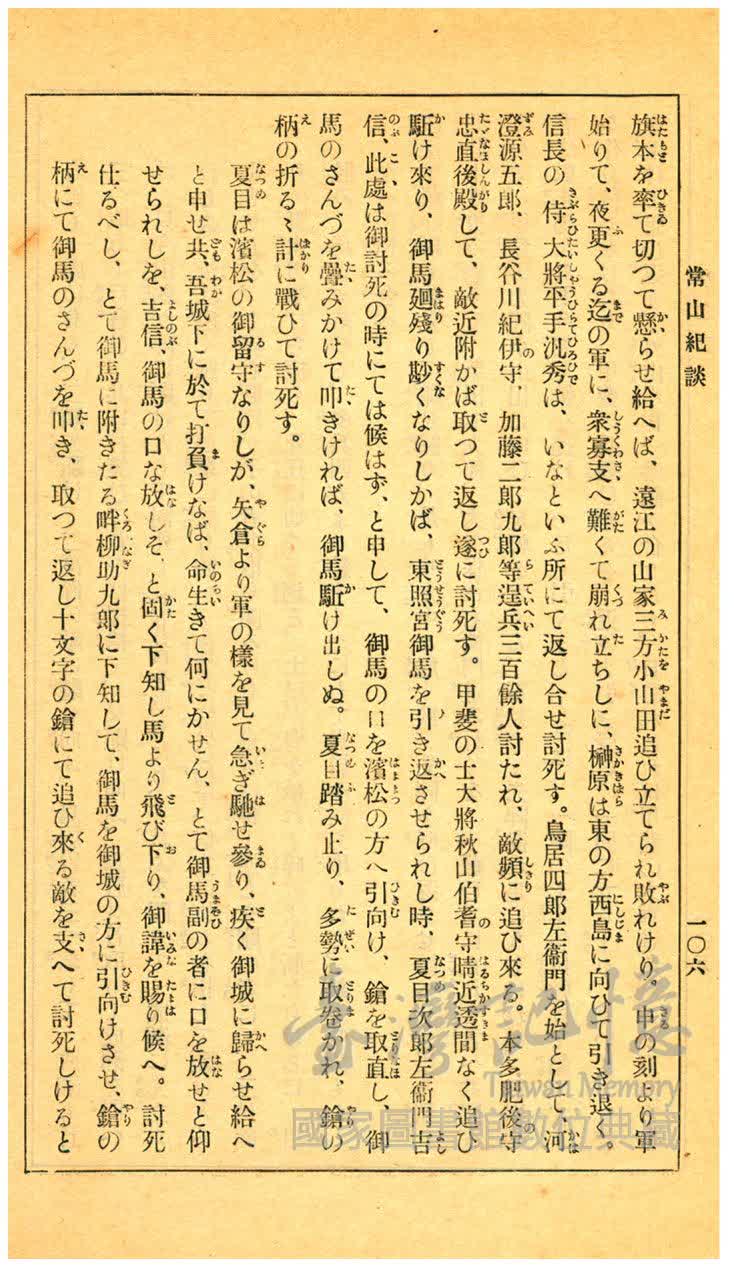 常山紀談
一〇六
旗本を率て切つて懸らせ給へば、遠江の山家三方小山田追ひ立てられ敗れけり。申の刻より軍
始りて、夜更くる迄の軍に、衆寡支へ難くて崩れ立ちしに、榊原は東の方西島に向ひて引き退く。
信長の侍大將平手汎秀は、いなといふ所にて返し合せ討死す。鳥居四郎左衞門を始として、河
澄源五郎、長谷川紀伊守、加藤二郎九郎等逞兵三百餘人討たれ、敵頻に追ひ來る。本多肥後守
忠直後殿して、敵近附かば取つて返し遂に討死す。甲斐の士大將秋山伯耆守晴近透間なく追ひ
駈け來り、御馬廻殘り尠くなりしかば、東照宮御馬を引き返させられし時、夏目次郎左衞門吉
信、此處は御討死の時にては候はず、と申して、御馬の口を濱松の方へ引向け、鎗を取直し、御
馬のさんづを疊みかけて叩きければ、御馬駈け出しぬ。夏目踏み止り、多勢に取卷かれ、鎗の
柄の折るゝ計に戰ひて討死す。
夏目は濱松の御留守なりしが、矢倉より軍の樣を見て急ぎ馳せ參り、疾く御城に歸らせ給へ
と申せ共、吾城下に於て打負けなば、命生きて何にかせん、とて御馬副の者に口を放せと仰
せられしを、吉信、御馬の口な放しそ、と固く下知し馬より飛び下り、御諱を賜り候へ。討死
仕るべし、とて御馬に附きたる畔柳助九郎に下知して、御馬を御城の方に引向けさせ、鎗の
柄にて御馬のさんづを叩き、取つて返し十文字の鎗にて追ひ來る敵を支へて討死しけると
臺灣記憶
Taiwan Memory
國家圖書館數位典藏